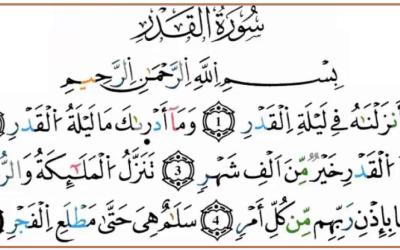 سُورَةُ الْقَدْرِ
بِسْمِ اللَّهِ الرَّحْمَٰنِ الرَّحِيمِ
أَنزَلْنَاهُ فِي لَيْلَةِ الْقَدْرِ ١ وَمَا أَدْرٜىٰكَ مَا لَيْلَةُ الْقَدْرِ
الْقَدْرِ خَيْرٌ مِّنَ اَلْفِ شَهْرٍ ٣ تَنَزَّلُ الْمَلَٰٓئِكَةُ وَالرُّ
بِإِذْنِ رَبِّهِم مِّن كُلِّ أَمْرٍ ٤ سَلَٰمٌ هِيَ حَتَّىٰ مَطْلَعِ الْفَجْرِ